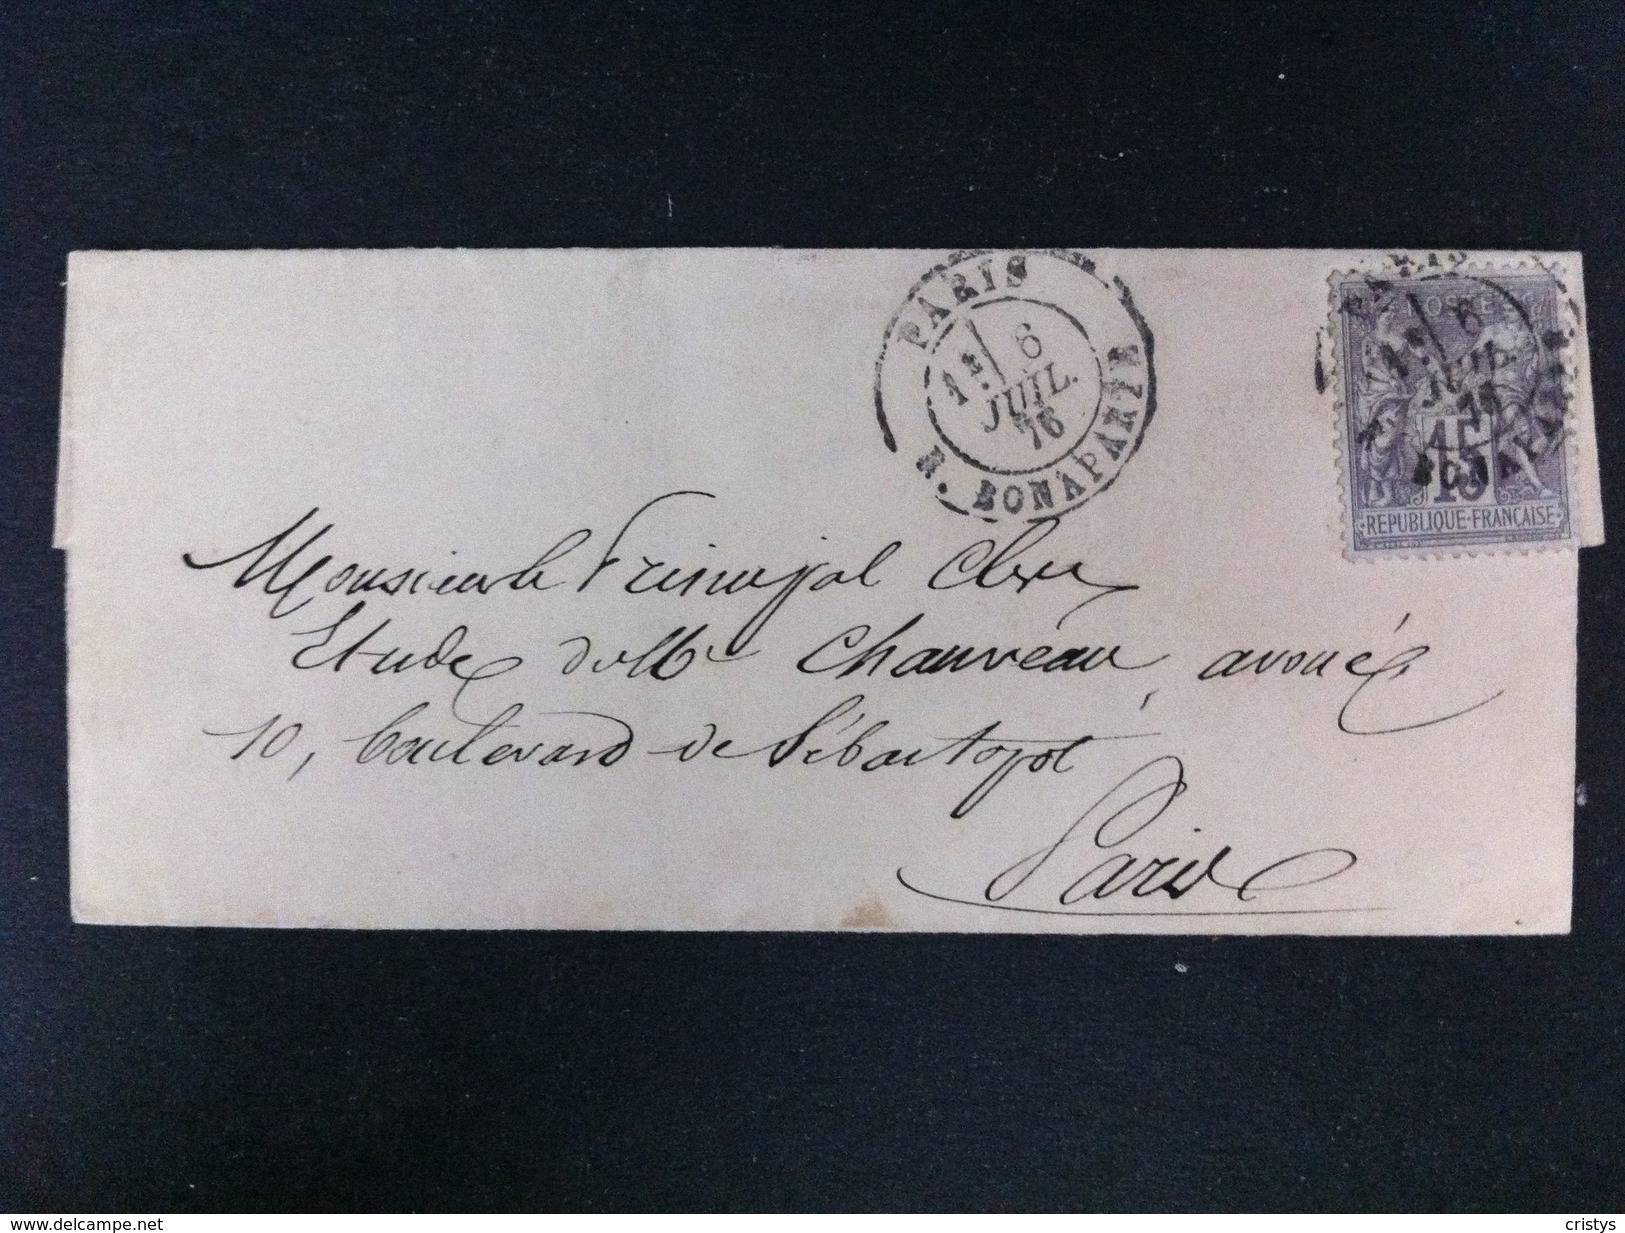 PARIS
1E
6
JUIL.
76
R. BONAPARTE
PARIS
POSTES
1E
6
JUIL.
76
15
BONAPARTE
REPUBLIQUE·FRANÇAISE
Monsieur le Principal Clerc
Etude de Me Chauveau, avoué
10, boulevard de Sébastopol
Paris
delcampe.net
cristys